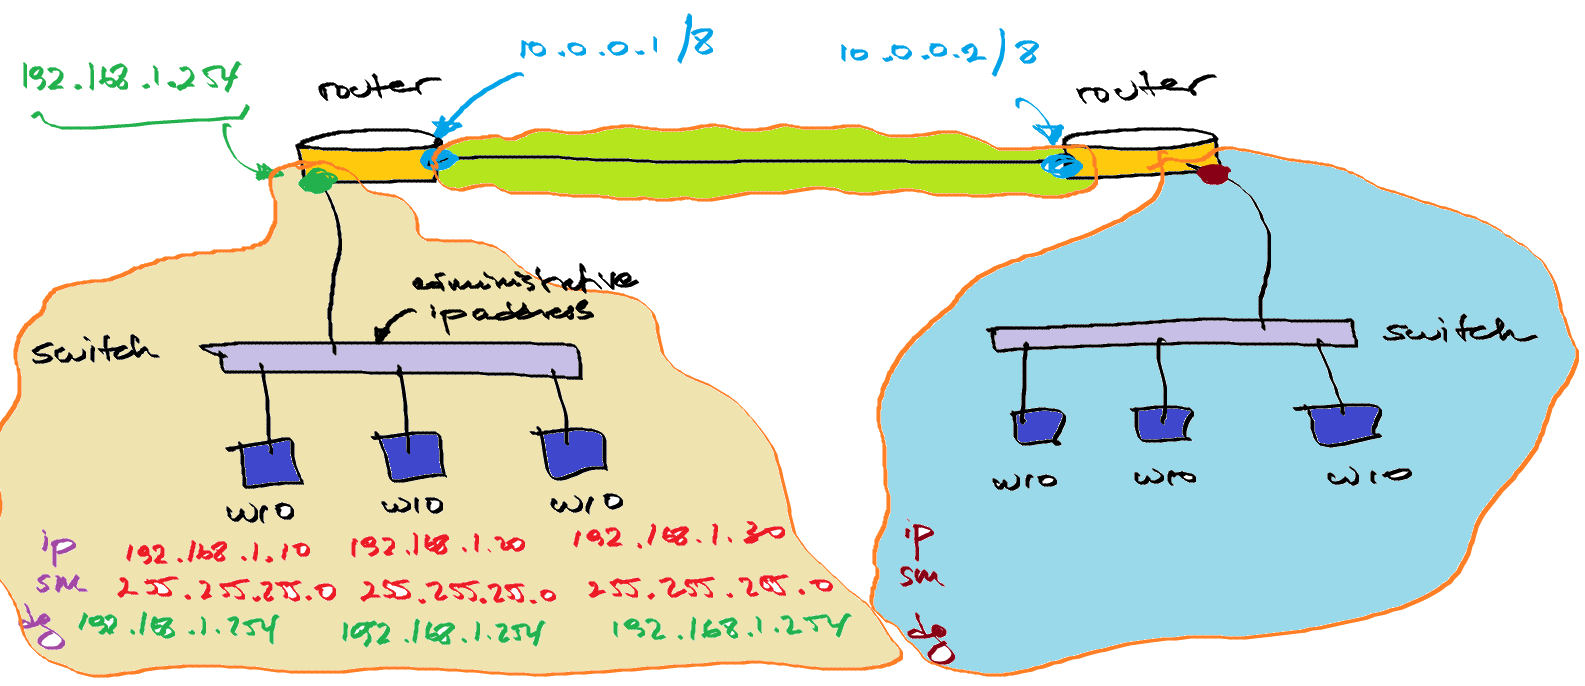 10.0.0.1/8
10.0.0.2/8
192.168.1.254
router
router
administrative
ip address
switch
switch
W10 W10 W10
W10 W10 W10
ip 192.168.1.10 192.168.1.20 192.168.1.30
sm 255.255.255.0 255.255.255.0 255.255.255.0
dg 192.168.1.254 192.168.1.254 192.168.1.254
ip
sm
dg